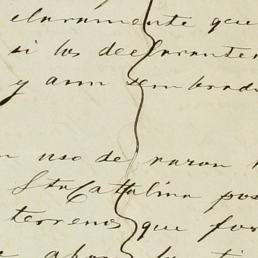 claramente que
si los declarantes
y aun sembrada
uso de razon
Sta Catalina pos
terrenos que for